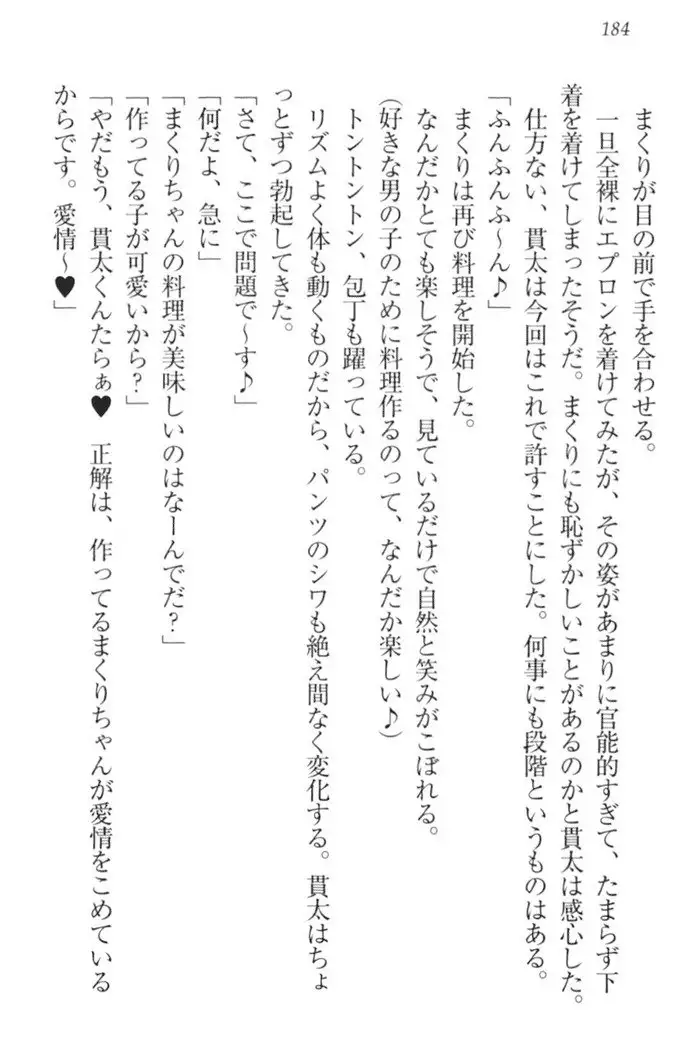 184
まくりが目の前で手を合わせる。
一旦全裸にエプロンを着けてみたが、その姿があまりに官能的すぎて、たまらず下
着を着けてしまったそうだ。まくりにも恥ずかしいことがあるのかと貫太は感心した。
仕方ない、貫太は今回はこれで許すことにした。何事にも段階というものはある。
「ふんふんふ～ん♪」
まくりは再び料理を開始した。
なんだかとても楽しそうで、見ているだけで自然と笑みがこぼれる。
(好きな男の子のために料理作るのって、なんだか楽しい♪)
トントントン、包丁も躍っている。
リズムよく体も動くものだから、パンツのシワも絶え間なく変化する。貫太はちょ
っとずつ勃起してきた。
「さて、ここで問題で～す♪」
「何だよ、急に」
「まくりちゃんの料理が美味しいのはなーんでだ?」
「作ってる子が可愛いから?」
「やだもう、貫太くんたらぁ♥　正解は、作ってるまくりちゃんが愛情をこめている
からです。愛情～♥」